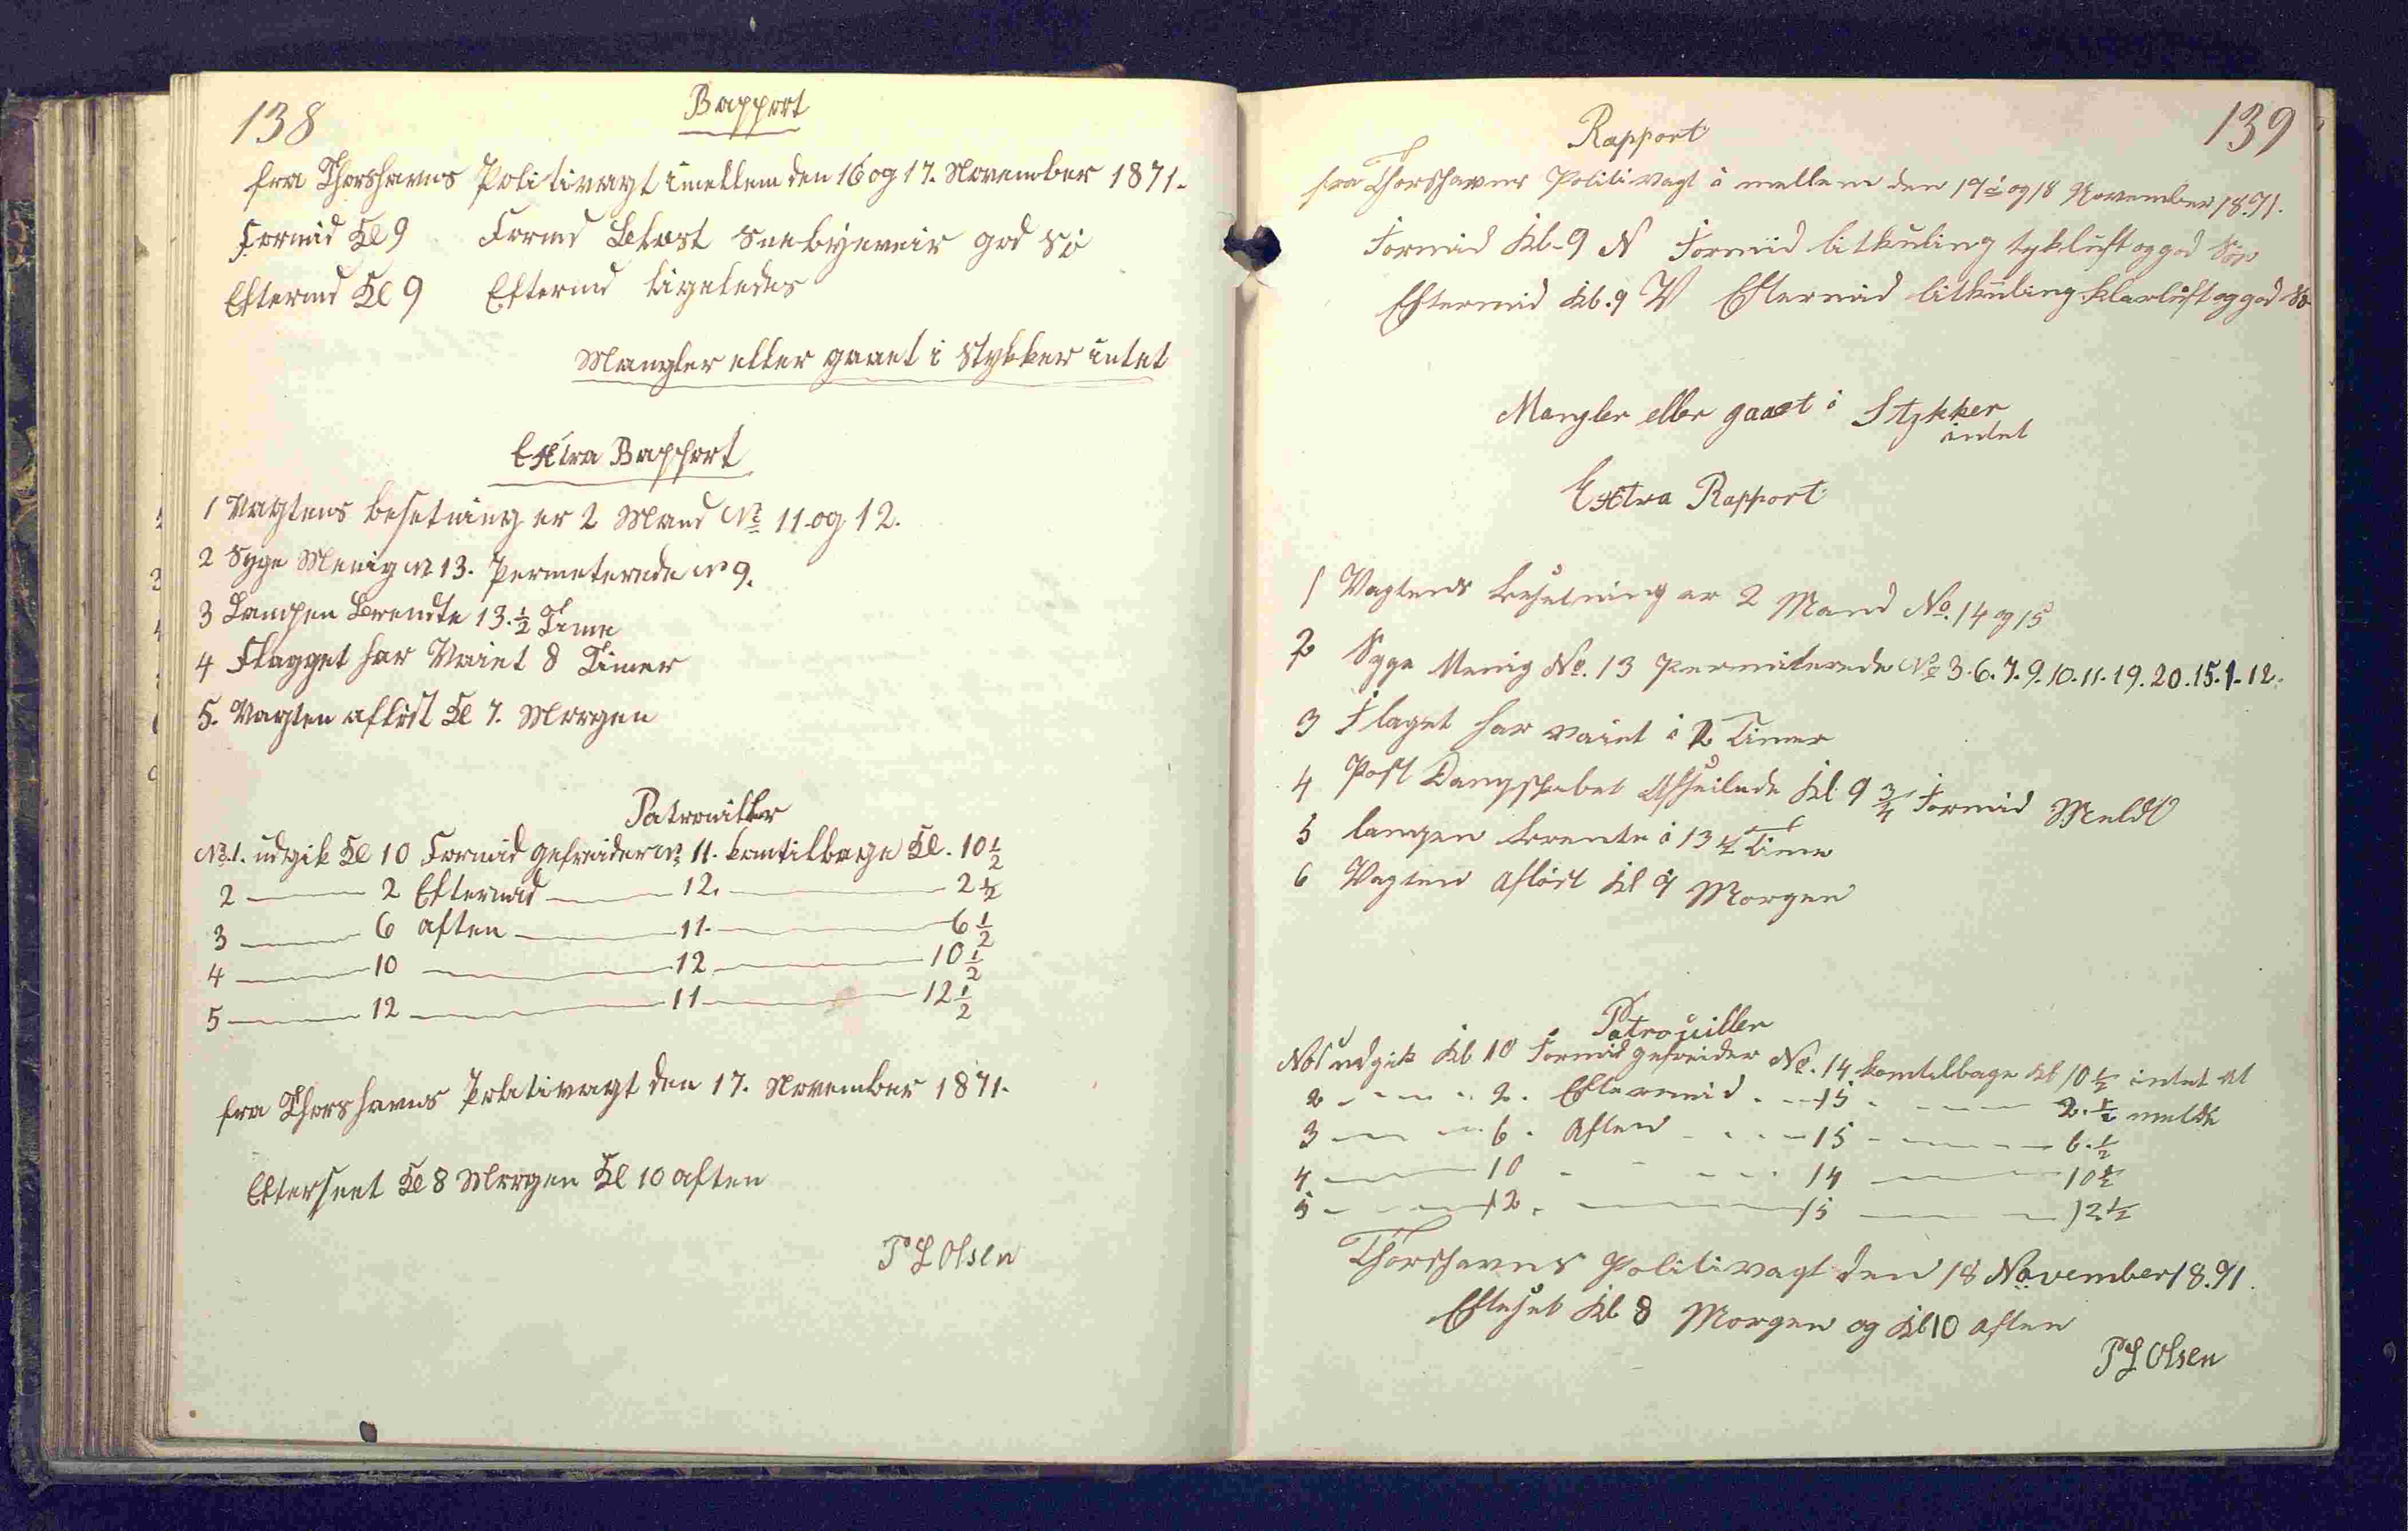 138
Rapport
fra Thorshavns Politivagt imellem den 16 og 17. November 1871.
Formid Kl 9 Formd Blæst Sneebyeveir god Sö
Eftermd Kl 9 Eftermd ligeledes
Mangler eller gaaet i Stykker intet
Extra Rapport
1 Vagtens besetning er 2 Mand No 11 og 12.
2 Syge Menig No 13. Permeterede No 9.
3 Lampen Brendte 13 1/2 Time
4 Flagget har Vaiet 8 Timer
5. Vagten aflöst Kl 7. Morgen
Patrouiller
No 1. udgik Kl 10 Formid gefreider No 11. kom tilbage Kl. 10 1/2
2 — 2 Eftermid — 12. — 2 1/2
3 — 6 aften — 11. — 6 1/2
4 — 10 — 12 — 10 1/2
5 — 12 — 11 — 12 1/2
fra Thorshavns Politivagt den 17. November 1871.
Efterseet Kl 8 Morgen Kl 10 aften
P L Olsen
139
Rapport
fra Thorshavns Politivagt i mellem den 17 og 18 November 1871.
Formid Kl. 9 N Formid litkuling tykluft og god Sö
Eftermid Kl. 9 V Eftermid litkuling klarluft og god Sö
Mangler eller gaaet i Stykker
intet
Extra Rapport
1 Vagtens besetning er 2 Mand No. 14 og 15
2 Syge Menig No. 13 Permiterede No 3. 6. 7. 9. 10. 11. 19. 20. 15. 1. 12.
3 Flaget har vaiet i 2 Timer
4 Post Dampskibet Afseilede Kl 9 3/4 Formid Meldt
5 lampen brente i 13 1/2 Time
6 Vagten aflöst Kl 7 Morgen
Patrouiller
No 1 udgik Kl 10 Formid gefreider No. 14 kom tilbage Kl 10 1/2 intet at
2 — 2. Eftermid — 15 — 2. 1/2 melde
3 — 6. Aften — 15 — 6. 1/2
4 — 10 — 14 — 10 1/2
5 — 12. — 15 — 12 1/2
Thorshavns Politivagt den 18 November 1871.
Efteset Kl 8 Morgen og Kl 10 aften
P L Olsen